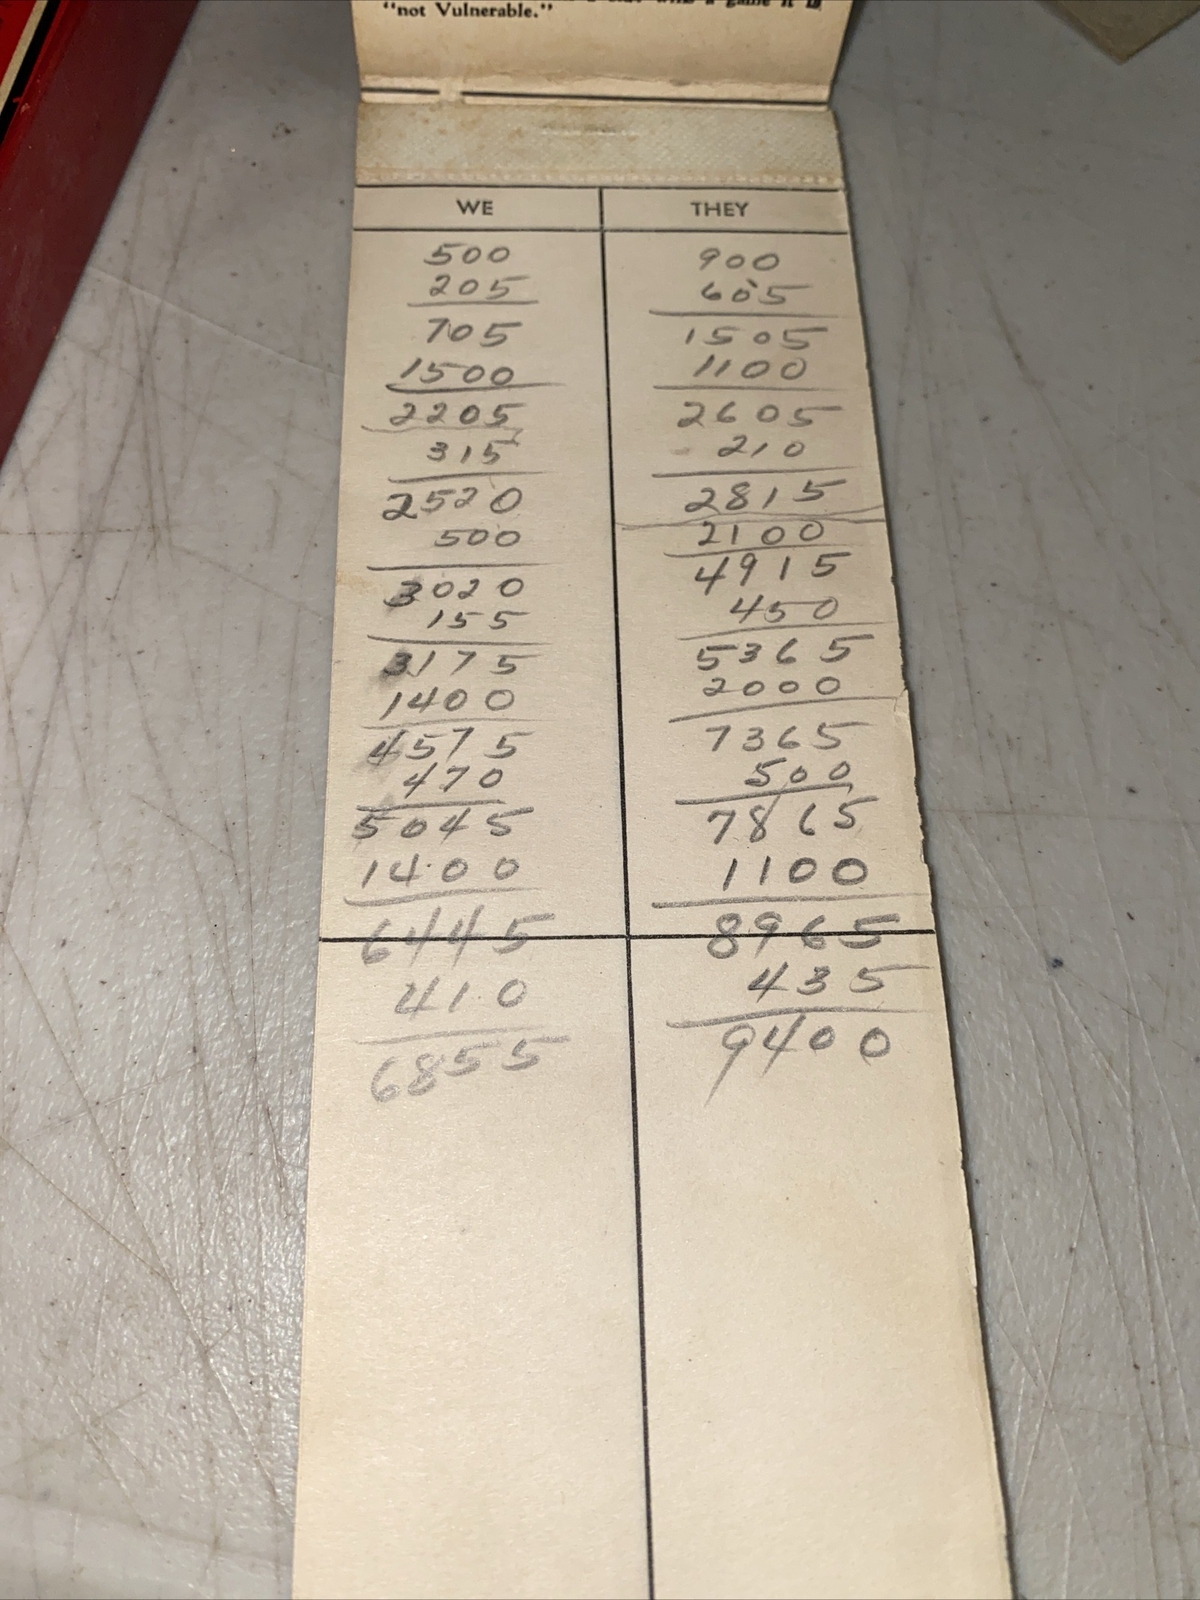 a game it is
"not Vulnerable."
WE THEY
500 900
205 605
705 1505
1500 1100
2205 2605
315 210
2520 2815
500 2100
3020 4915
155 450
3175 5365
1400 2000
4575 7365
470 500
5045 7865
1400 1100
6445 8965
410 435
6855 9400